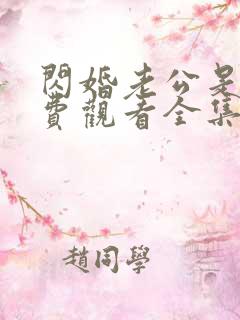 閃婚老公是
費觀看全集
趙同學